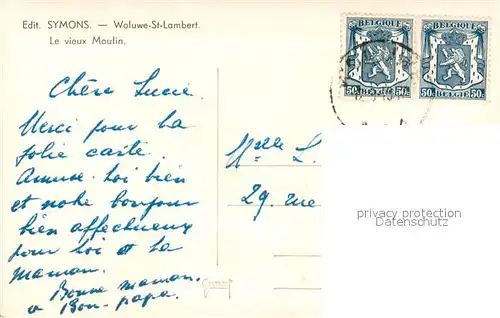 Edit. SYMONS. — Woluwe-St-Lambert.
Le vieux Moulin.
BELGIQUE
50c 50c
BELGIË
BELGIQUE
50c 50c
BELGIË
Chère Lucie.
Merci pour ta
jolie carte.
Amuse-toi bien
et notre bonjour
bien affectueux
pour toi et ta
maman.
Bonne maman.
& Bon-papa.
Mlle L.
29. rue
privacy protection
Datenschutz